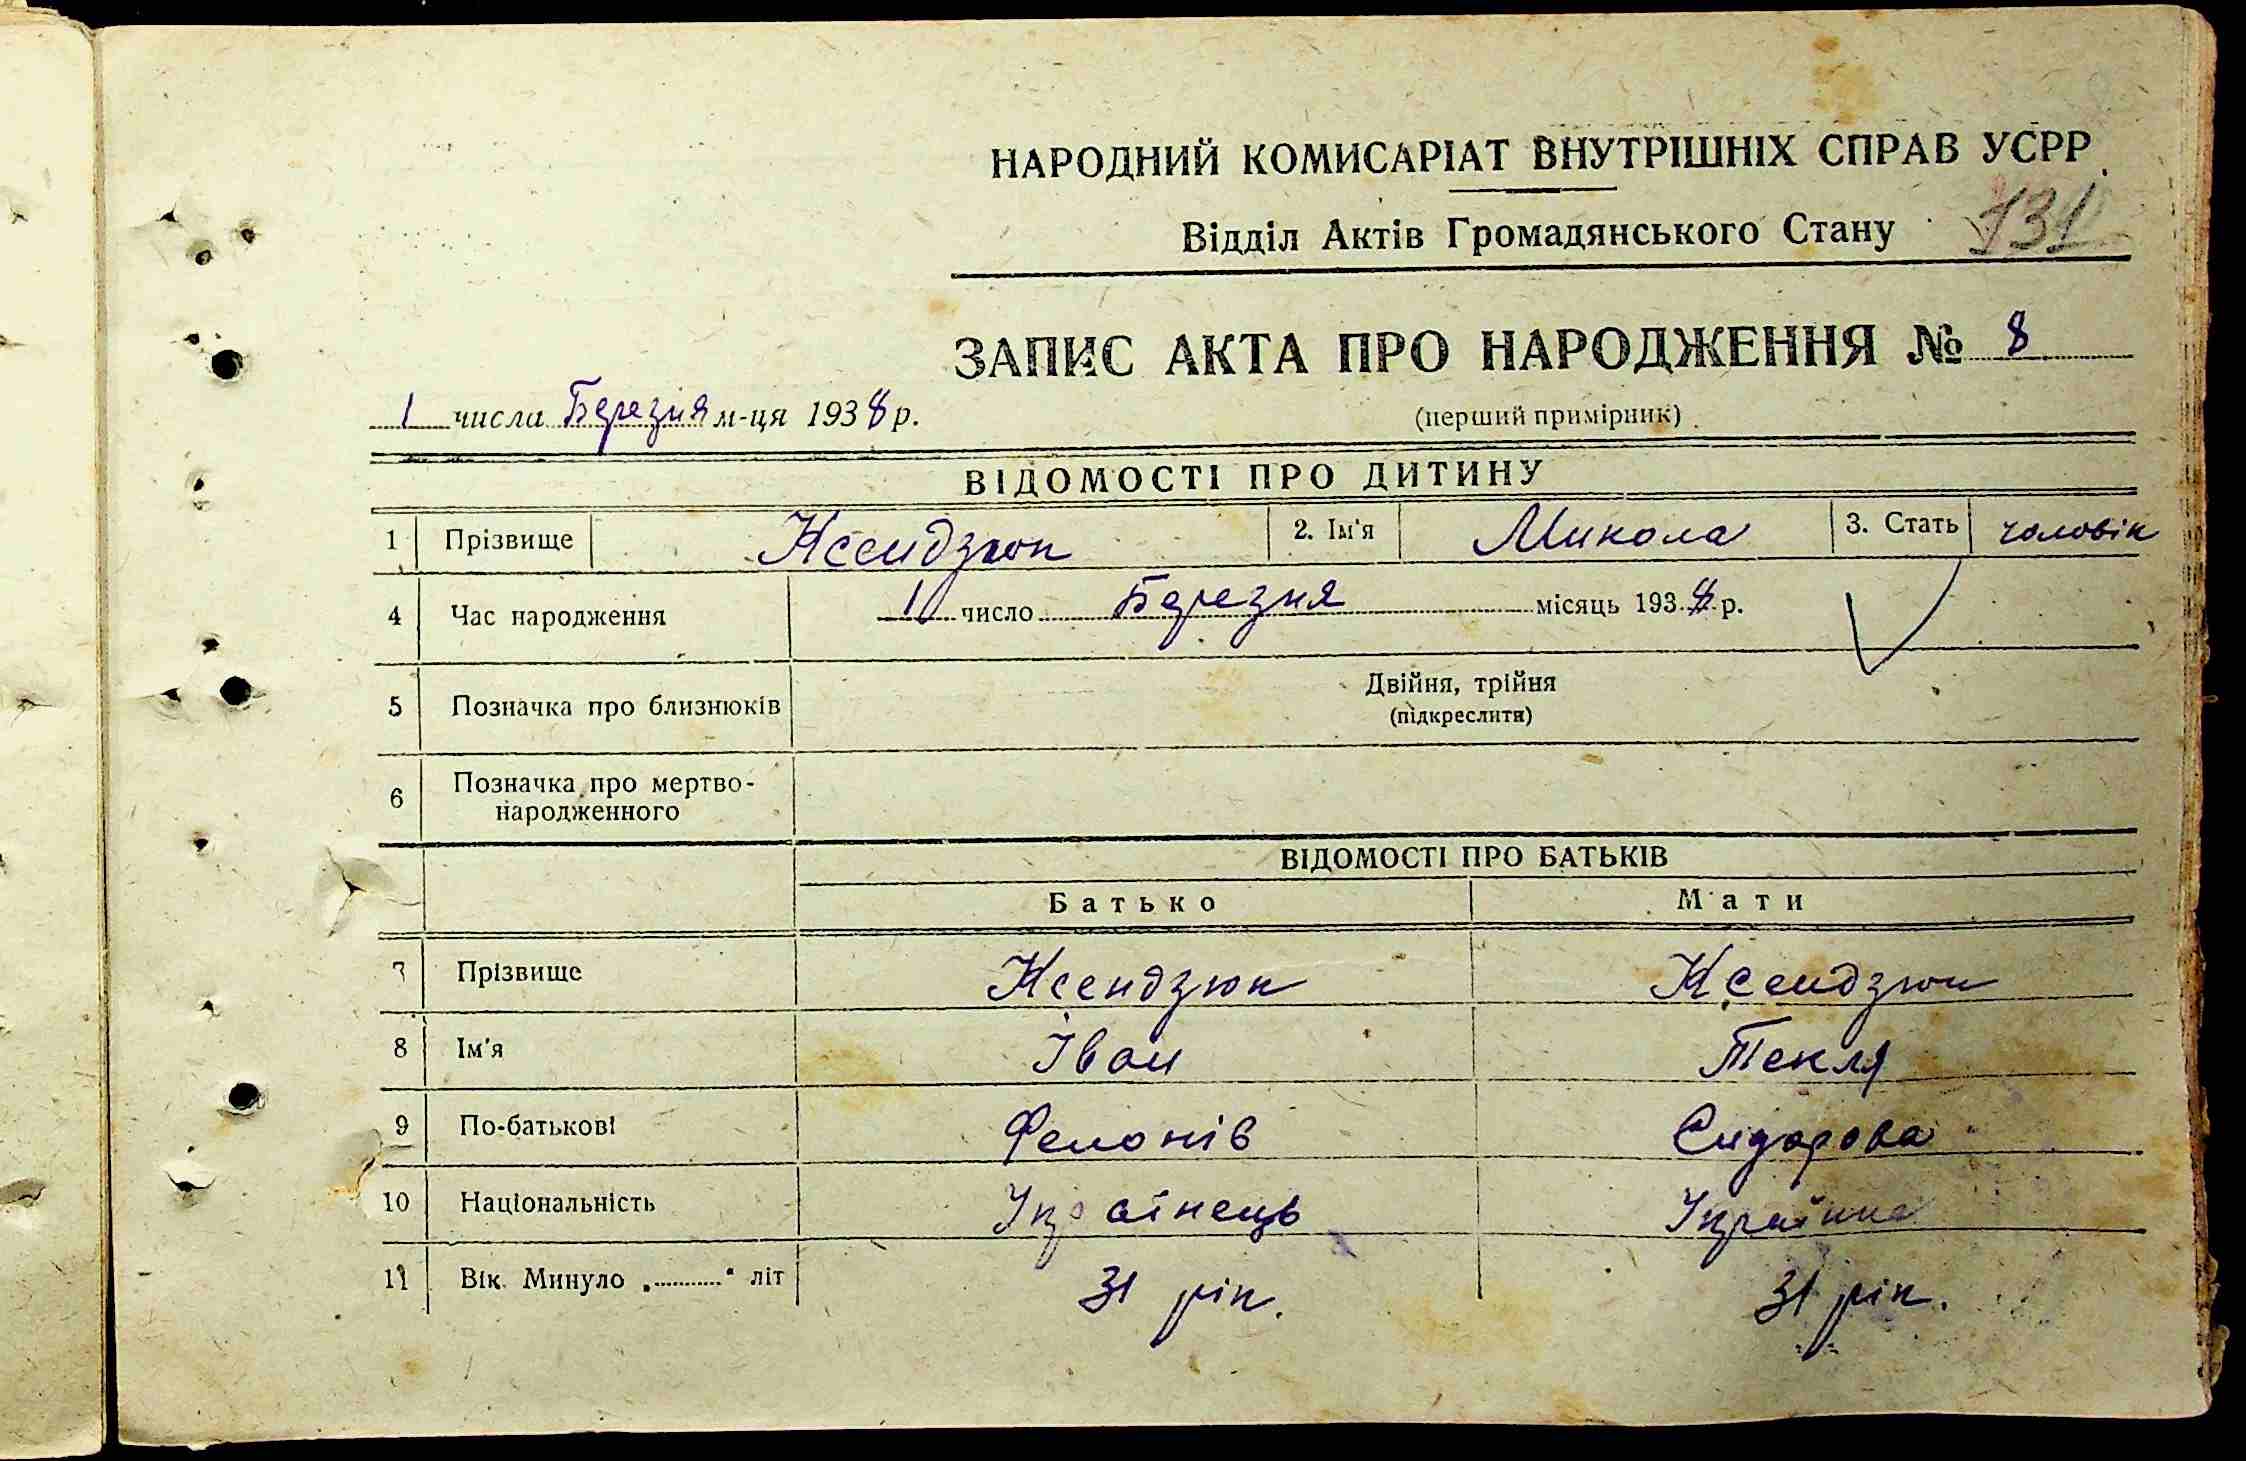 НАРОДНИЙ КОМИСАРІАТ ВНУТРІШНІХ СПРАВ УСРР
Відділ Актів Громадянського Стану 131
ЗАПИС АКТА ПРО НАРОДЖЕННЯ № 8
1 числа Березня м-ця 1938 р.
(перший примірник)
ВІДОМОСТІ ПРО ДИТИНУ
1 Прізвище Ксендзюк 2. Ім'я Микола 3. Стать чоловік
4 Час народження 1 число Березня місяць 1938 р.
5 Позначка про близнюків Двійня, трійня
(підкреслити)
6 Позначка про мертво-
народженного
ВІДОМОСТІ ПРО БАТЬКІВ
Батько Мати
7 Прізвище Ксендзюк Ксендзюк
8 Ім'я Іван Текля
9 По-батькові Фелонів Сидорова
10 Національність Українець Українка
11 Вік. Минуло „..........“ літ 31 рік. 31 рік.